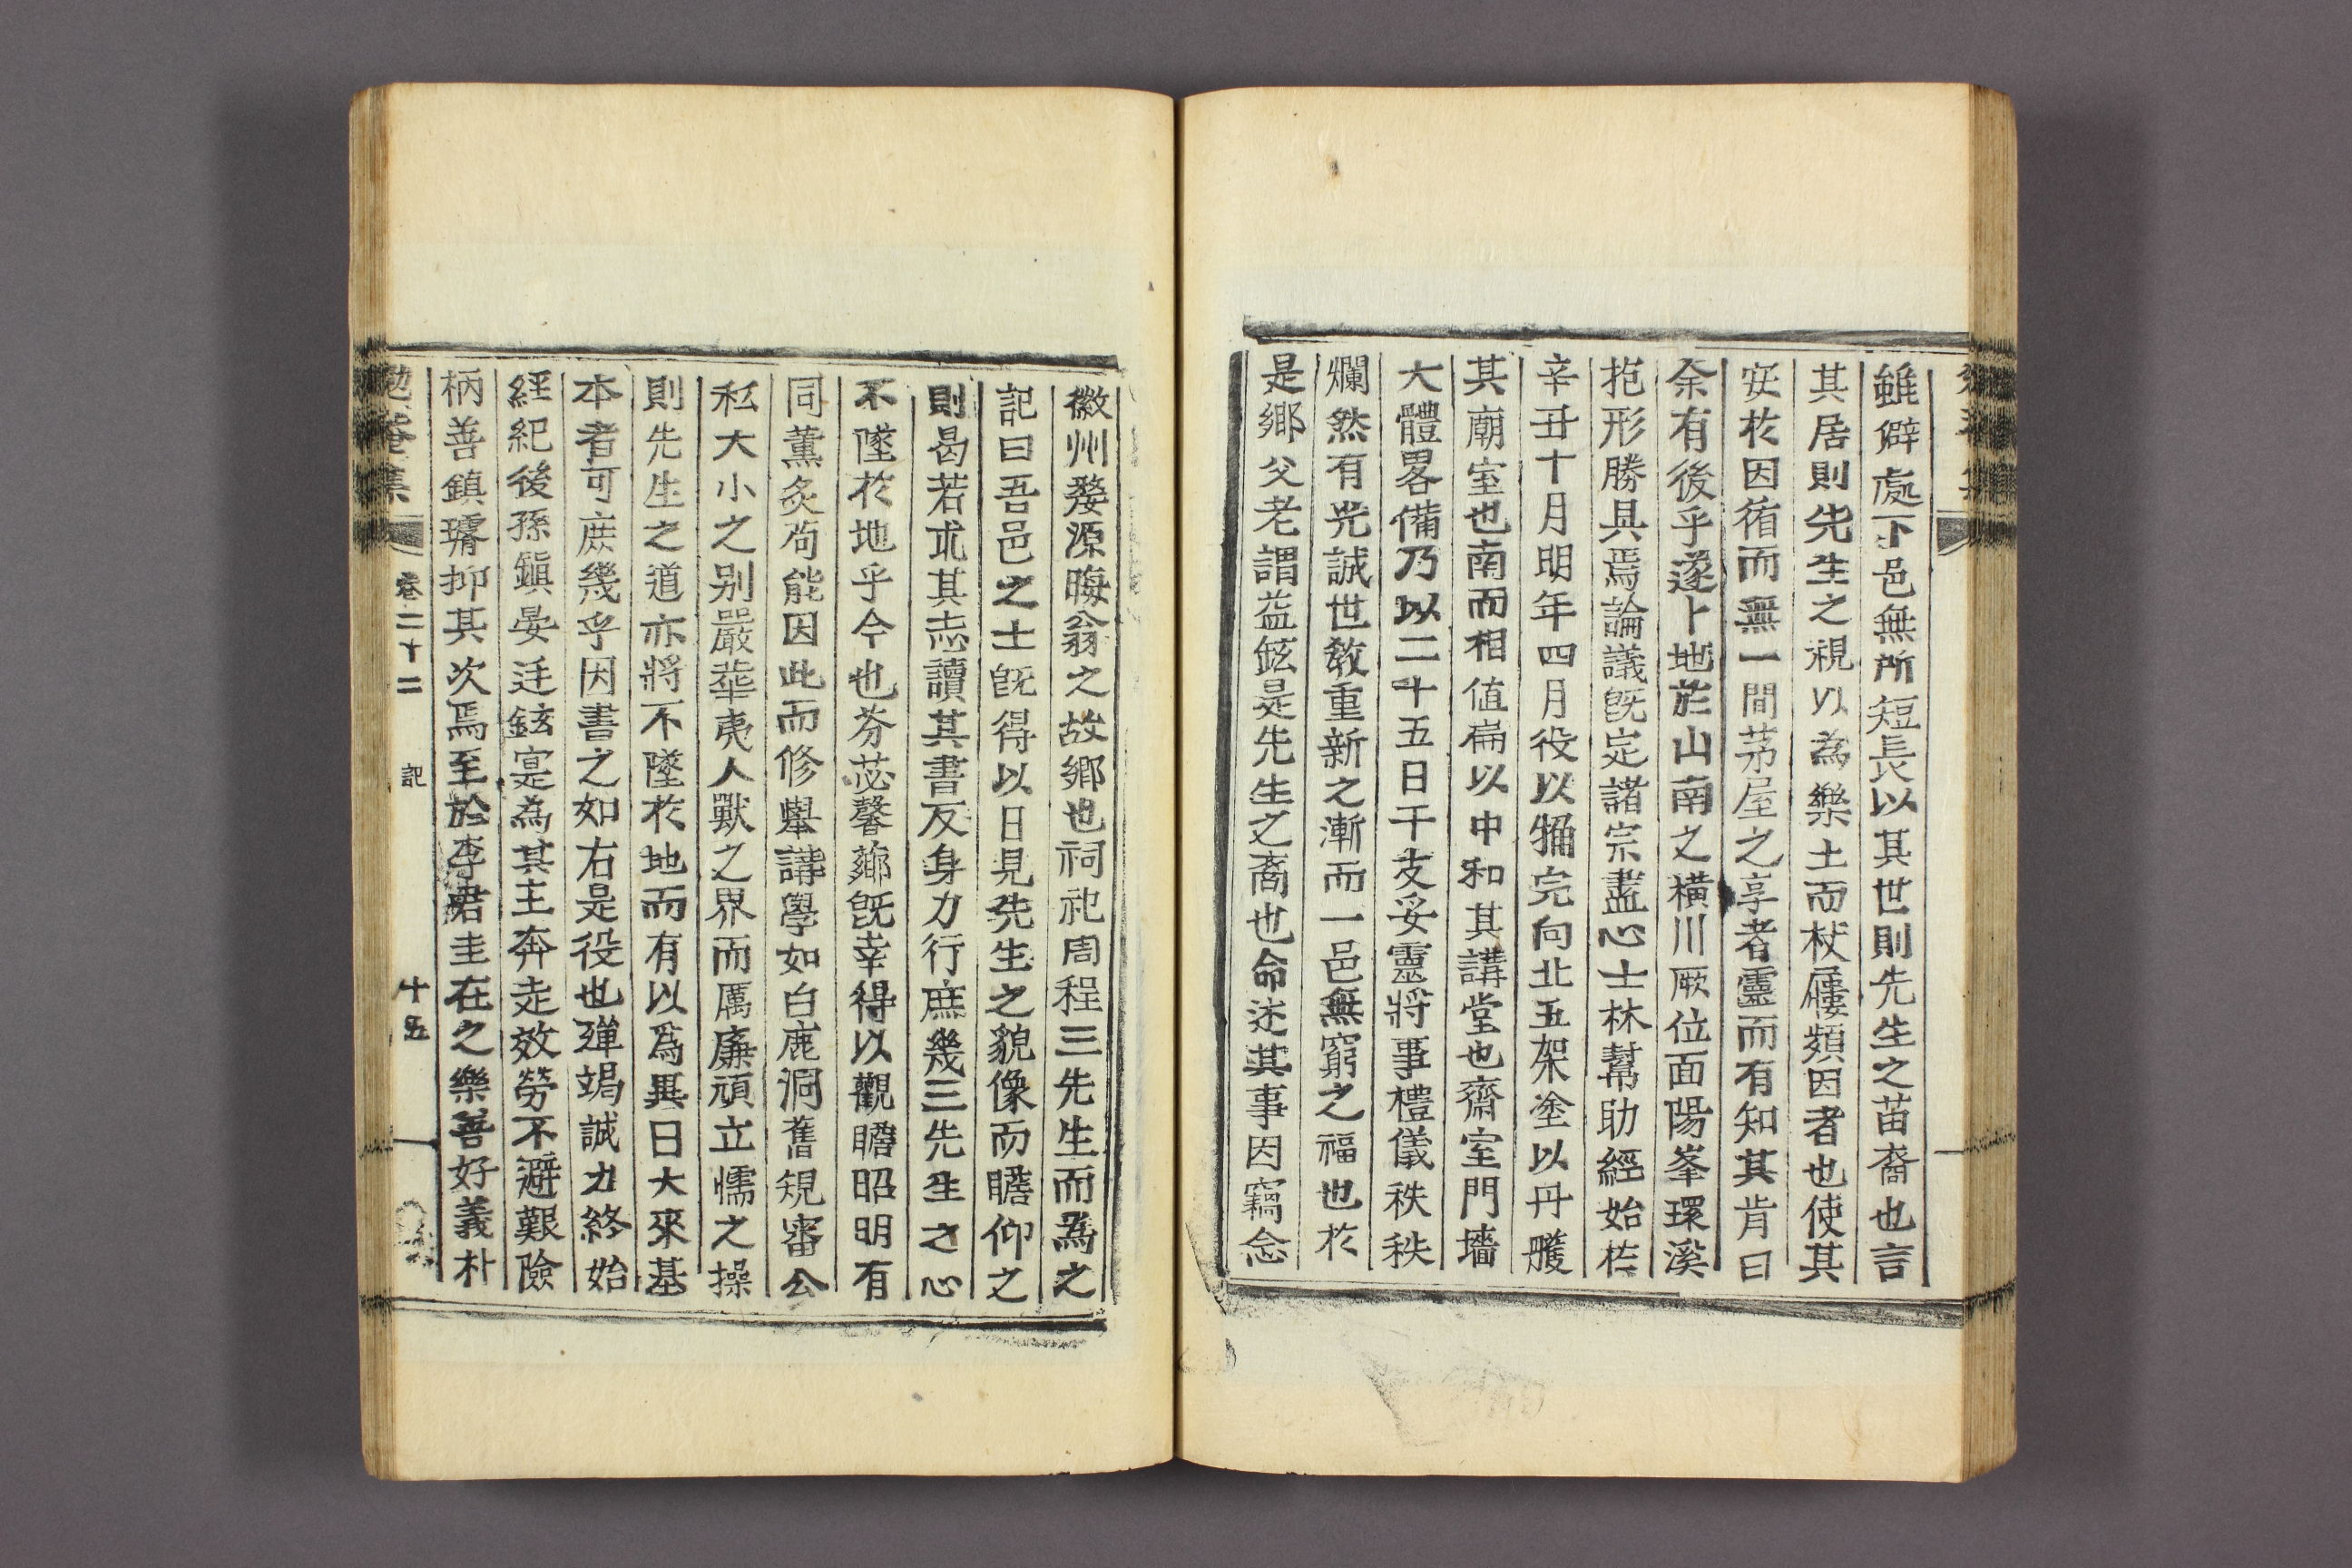 雖僻處下邑無所短長以其世則先生之苗裔也言
其居則先生之視以為樂土而杖屨頻因者也使其
安於因循而無一間茅屋之享者靈而有知其肯曰
余有後乎遂卜地於山南之橫川厥位面陽峯環溪
抱形勝具焉論議旣定諸宗盡心士林幇助經始於
辛丑十月明年四月役以犕完向北五架塗以丹雘
其廟室也南而相値扁以中和其講堂也齋室門墻
大體畧備乃以二十五日干支妥靈將事禮儀秩秩
爛然有光誠世敎重新之漸而一邑無窮之福也於
是鄉父老謂益鉉是先生之裔也命述其事因竊念
徽州婺源晦翁之故鄉也祠祀周程三先生而爲之
記曰吾邑之士旣得以日見先生之貌像而瞻仰之
則曷若求其志讀其書反身力行庶幾三先生之心
不墜於地乎今也芬苾馨薌旣幸得以觀瞻昭明有
同薰炙苟能因此而修擧講學如白鹿洞舊規審公
私大小之别嚴華夷人獸之界而厲廉頑立懦之操
則先生之道亦將不墜於地而有以爲異日大來基
本者可庶幾乎因書之如右是役也殫竭誠力終始
經紀後孫鎭晏廷鉉寔為其主奔走效勞不避艱險
柄善鎭璿抑其次焉至於李君圭在之樂善好義朴
勉菴集
卷二十二
記
十五